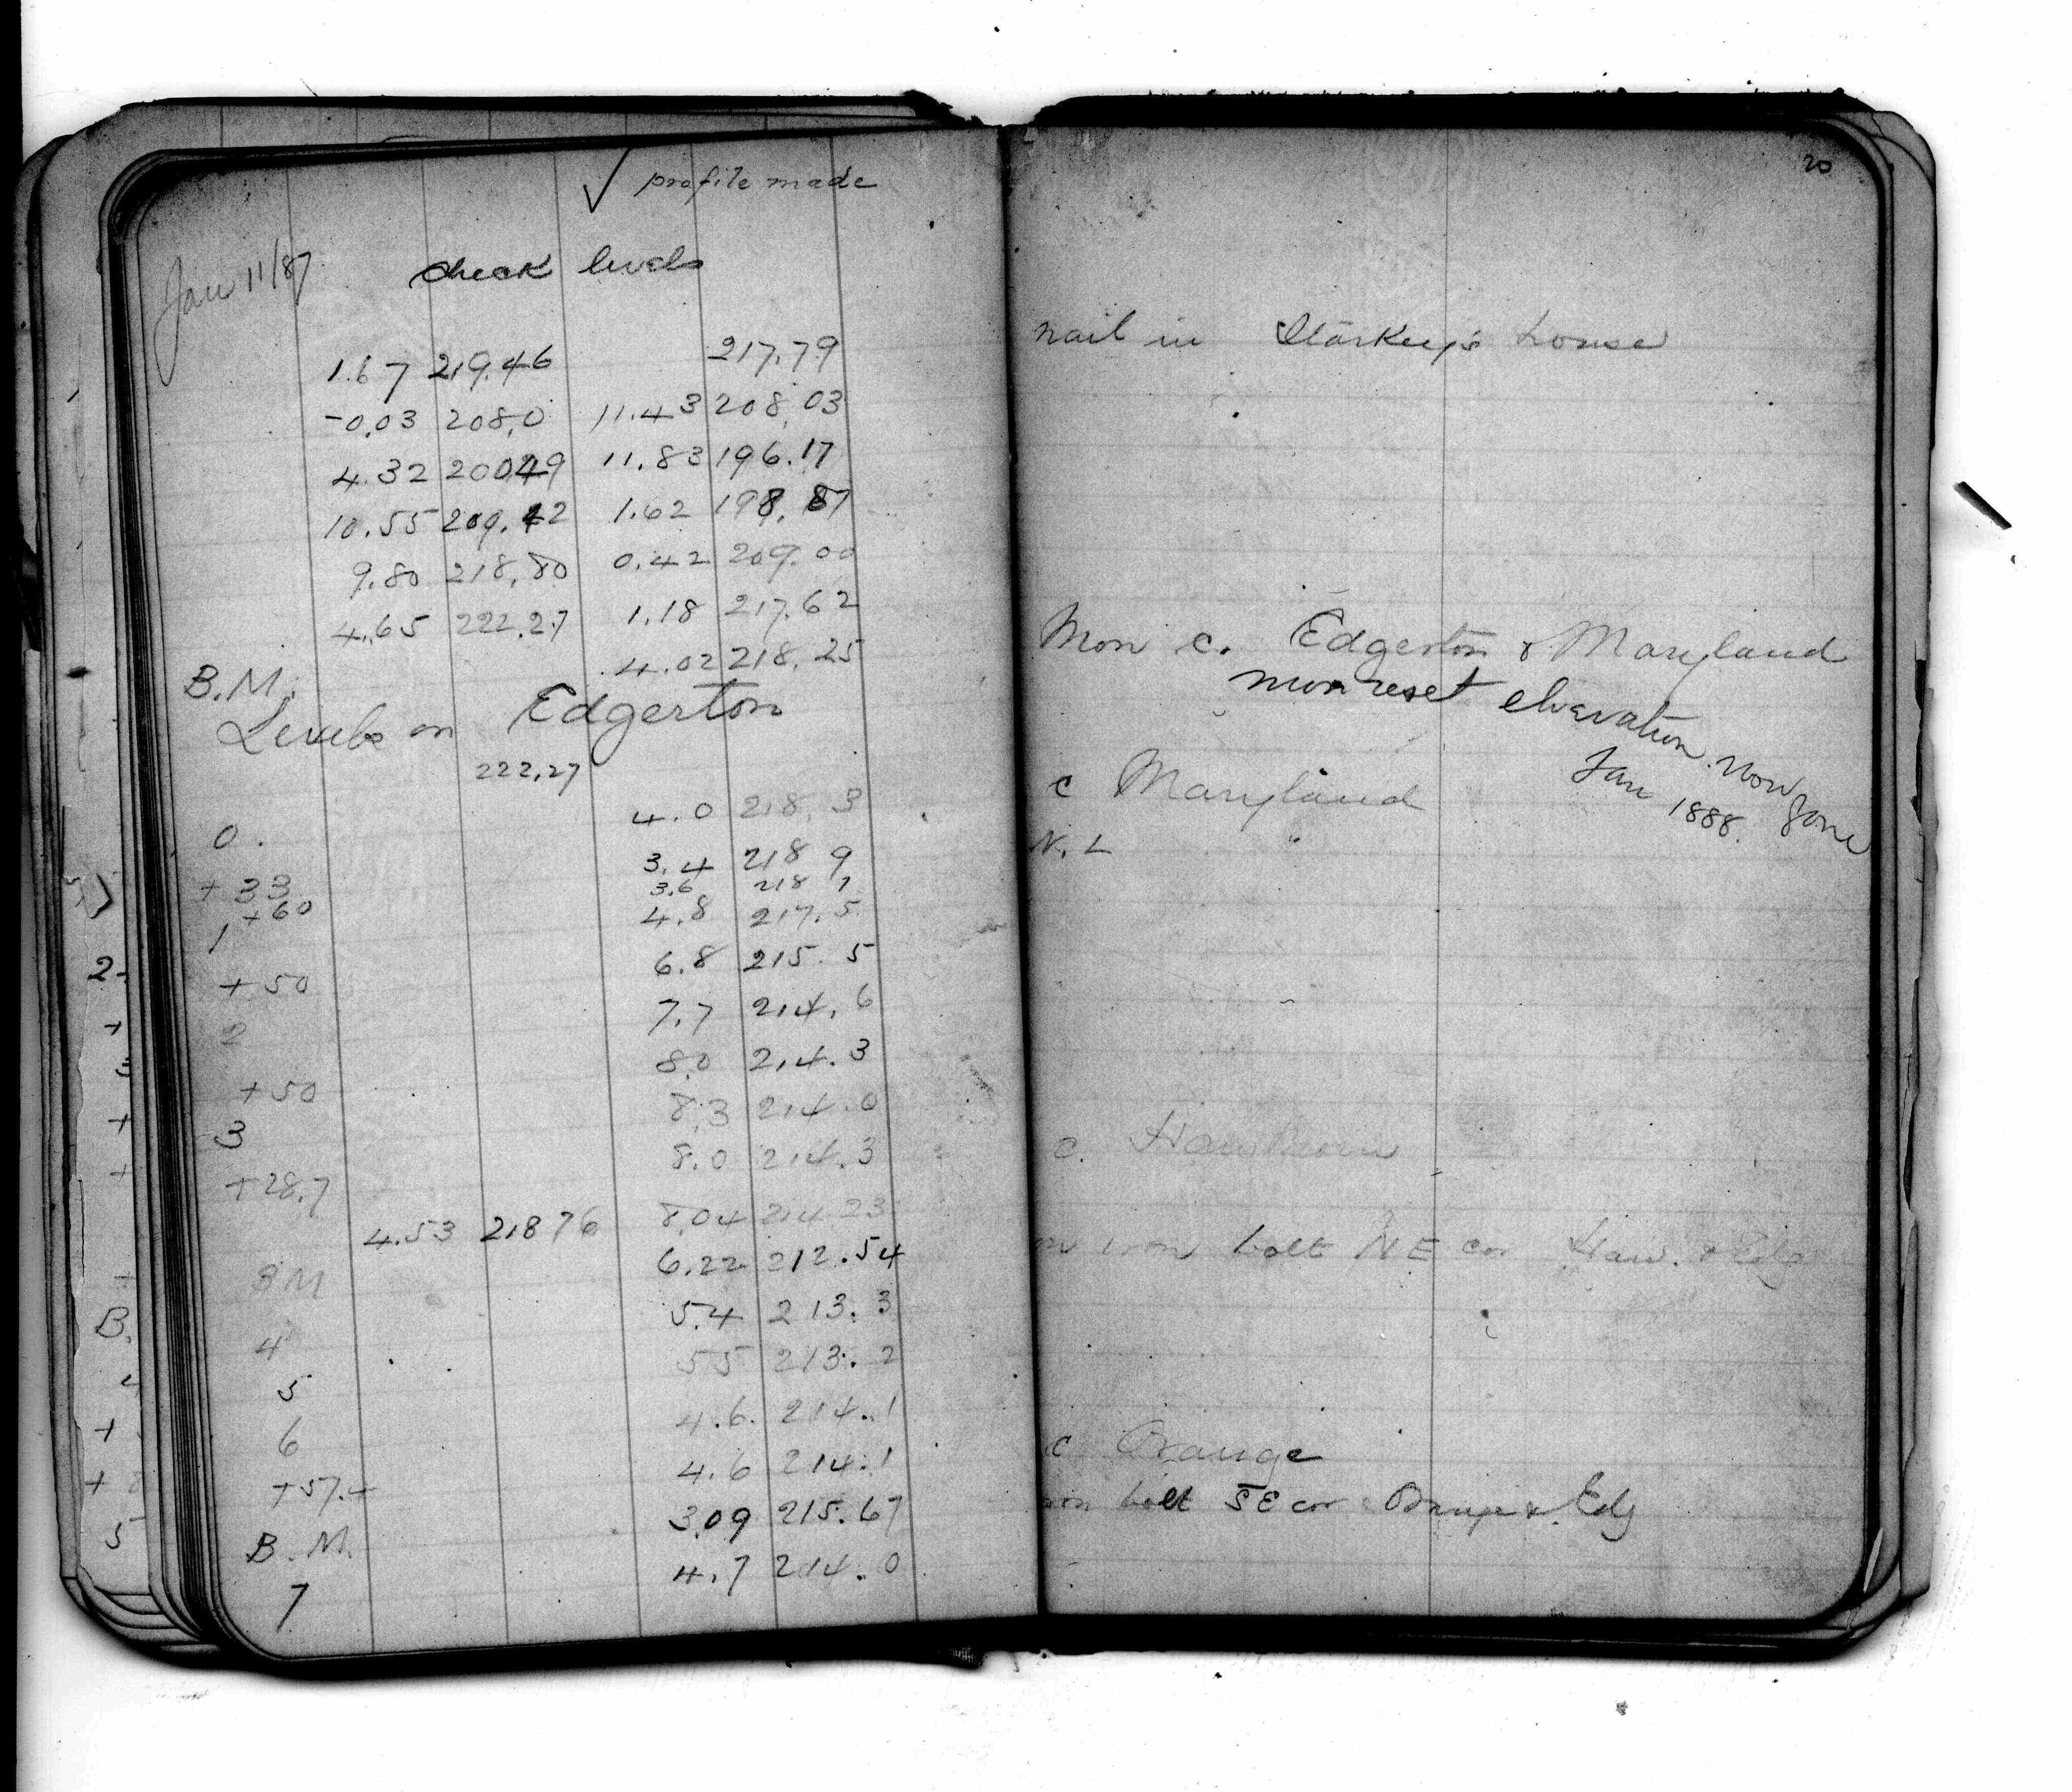 √ profile made
Jan 11/87 check levels
1.67 219.46 217.79
-0.03 208.0 11.43 208.03
4.32 200.49 11.83 196.17
10.55 209.42 1.62 198.87
9.80 218.80 0.42 209.00
4.65 222.27 1.18 217.62
B.M. 4.02 218.25
Levels on Edgerton
222.27
0. 4.0 218.3
+33 3.4 218 9
+60 3.6 218 7
1 4.8 217.5
+50 6.8 215.5
2 7.7 214.6
+50 8.0 214.3
3 8.3 214.0
+28.7 8.0 214.3
4.53 218 76 8.04 214 23
BM 6.22 212.54
4 5.4 213.3
5 5.5 213.2
6 4.6. 214.1
+57.4 4.6 214.1
B.M. 3.09 215.67
7 4.7 214.0
20
nail in Starkey's house
Mon c. Edgerton & Maryland
mon reset elevation now gone
Jan 1888.
c Maryland
N. L "
c. Hawthorn
on iron bolt NE cor Haw. & Edg
c Orange
iron bolt SE cor Orange & Edg
2.
+
3
+
+
+
B.
+
+
5